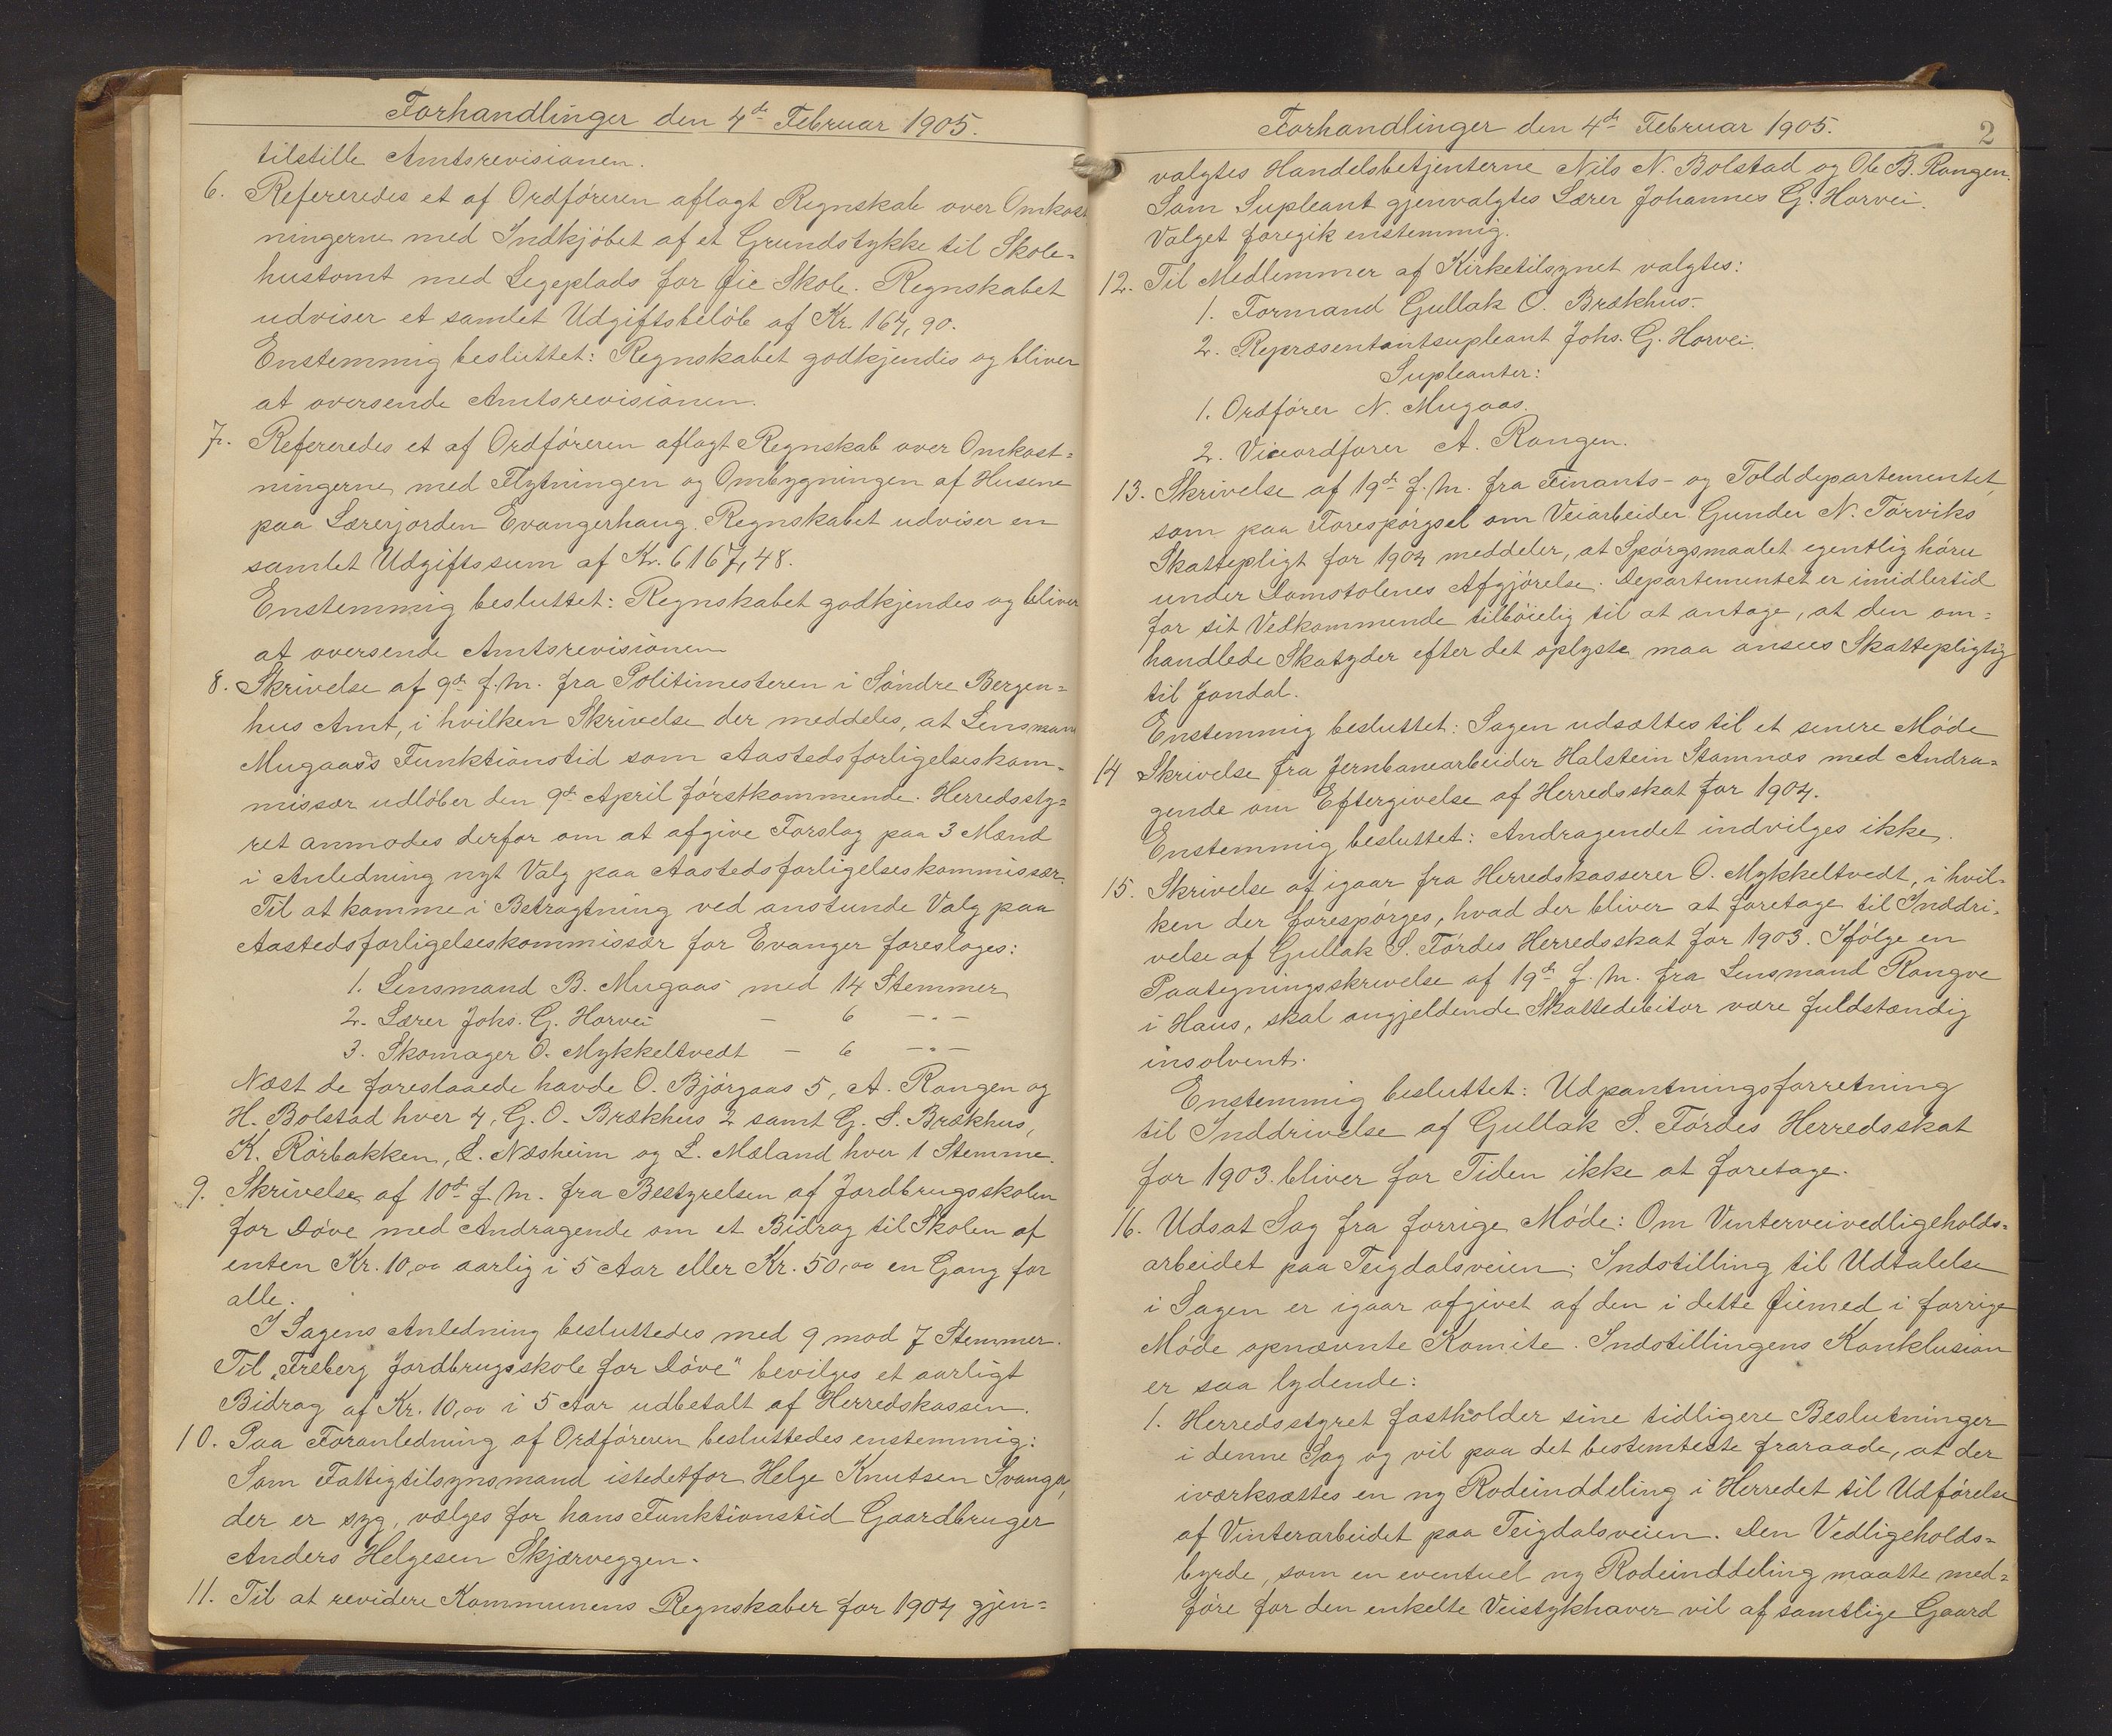 Forhandlinger den 4de Februar 1905.
tilstille Amtsrevisionen.
6. Refereredes et af Ordføreren aflagt Regnskab over Omkost
ningerne med Indkjøbet af et Grundstykke til Skole=
hustomt med Legeplads for Øie Skole. Regnskabet
udviser et samlet Udgiftsbeløb af Kr. 164,90.
Enstemmig besluttet: Regnskabet godkjendis og bliver
at oversende Amtsrevisionen.
7. Refereredes et af Ordføreren aflagt Regnskab over Omkost=
ningerne med Flytningen og Ombygningen af Husene
paa Lærerjorden Evangerhaug. Regnskabet udviser en
samlet Udgiftssum af Kr. 6167,48.
Enstemmig besluttet: Regnskabet godkjendes og bliver
at oversende Amtsrevisionen
8. Skrivelse af 9de f.M. fra Politimesteren i Søndre Bergen=
hus Amt, i hvilken Skrivelse der meddeles, at Lensmann
Mugaas's Funktionstid som Aastedsforligelseskom=
missær udløber den 9de April førstkommende. Herredssty=
ret anmodes derfor om at afgive Forslag paa 3 Mænd
i Anledning nyt Valg paa Aastedsforligelseskommissær.
Til at komme i Betragtning ved anstunde Valg paa
Aastedsforligelseskommissær for Evanger foreslages:
1. Lensmand B. Mugaas med 14 Stemmer
2. Lærer Johs. G. Horvei — 6 —"—
3. Skomager O. Mykkeltvedt — 6 —"—
Næst de foreslaaede havde O. Bjørgaas 5, A. Rongen og
H. Bolstad hver 4, G. O. Brækhus 2 samt G. S. Brækhus,
K. Rørbakken, L. Næsheim og L. Mæland hver 1 Stemme.
9. Skrivelse af 10de f.M. fra Bestyrelsen af Jordbrugsskolen
for Døve med Andragende om et Bidrag til Skolen af
enten Kr. 10,00 aarlig i 5 Aar eller Kr. 50,00 en Gang for
alle.
I Sagens Anledning besluttedes med 9 mod 7 Stemmer.
Til „Freberg Jordbrugsskole for Døve" bevilges et aarligt
Bidrag af Kr. 10,00 i 5 Aar udbetalt af Herredskassen.
10. Paa Foranledning af Ordføreren besluttedes enstemmig:
Som Fattigtilsynsmand istedetfor Helge Knutsen Evanger,
der er syg, vælges for hans Funktionstid Gaardbruger
Anders Helgesen Skjærveggen.
11. Til at revidere Kommunens Regnskaber for 1904 gjen=
Forhandlinger den 4de Februar 1905.
2
valgtes Handelsbetjenterne Nils N. Bolstad og Ole B. Rongen.
Som Supleant gjenvalgtes Lærer Johannes G. Horvei.
Valget foregik enstemmig.
12. Til Medlemmer af Kirketilsynet valgtes:
1. Formand Gullak O. Brækhus.
2. Repræsentantsupleant Johs. G. Horvei.
Supleanter:
1. Ordfører N. Mugaas.
2. Viceordfører A. Rongen.
13. Skrivelse af 19de f.M. fra Finants- og Tolddepartementet,
som paa Forespørgsel om Veiarbeider Gunder N. Tørviks
Skattepligt for 1904 meddeler, at Spørgsmaalet egentlig hører
under Domstolenes Afgjørelse. Departementet er imidlertid
for sit Vedkommende tilbøielig til at antage, at den om=
handlede Skatyder efter det oplyste maa ansees Skattepligtig
til Jondal.
Enstemmig besluttet: Sagen udsættes til et senere Møde
14 Skrivelse fra Jernbanearbeider Halstein Stamnæs med Andra=
gende om Eftergivelse af Herredsskat for 1904.
Enstemmig besluttet: Andragendet indvilges ikke.
15. Skrivelse af igaar fra Herredskasserer O. Mykkeltvedt, i hvil=
ken der forespørges, hvad der bliver at foretage til Inddri=
velse af Gullak S. Førdes Herredsskat for 1903. Ifølge en
Paategningsskrivelse af 19de f.M. fra Lensmand Rongve
i Haus, skal angjeldende Skattedebitor være fuldstændig
insolvent.
Enstemmig besluttet: Udpantningsforretning
til Inddrivelse af Gullak S. Førdes Herredsskat
for 1903 bliver for Tiden ikke at foretage.
16. Udsat Sag fra forrige Møde: Om Vinterveivedligeholds=
arbeidet paa Teigdalsveien. Indstilling til Udtalelse
i Sagen er igaar afgivet af den i dette Øiemed i forrige
Møde opnævnte Komite. Indstillingens Konklusion
er saa lydende:
1. Herredsstyret fastholder sine tidligere Beslutninger
i denne Sag og vil paa det bestemteste fraraade, at der
iværksættes en ny Rodeinddeling i Herredet til Udførelse
af Vinterarbeidet paa Teigdalsveien. Den Vedligeholds=
byrde, som en eventuel ny Rodeinddeling maatte med=
føre for den enkelte Veistykhaver vil af samtlige Gaard